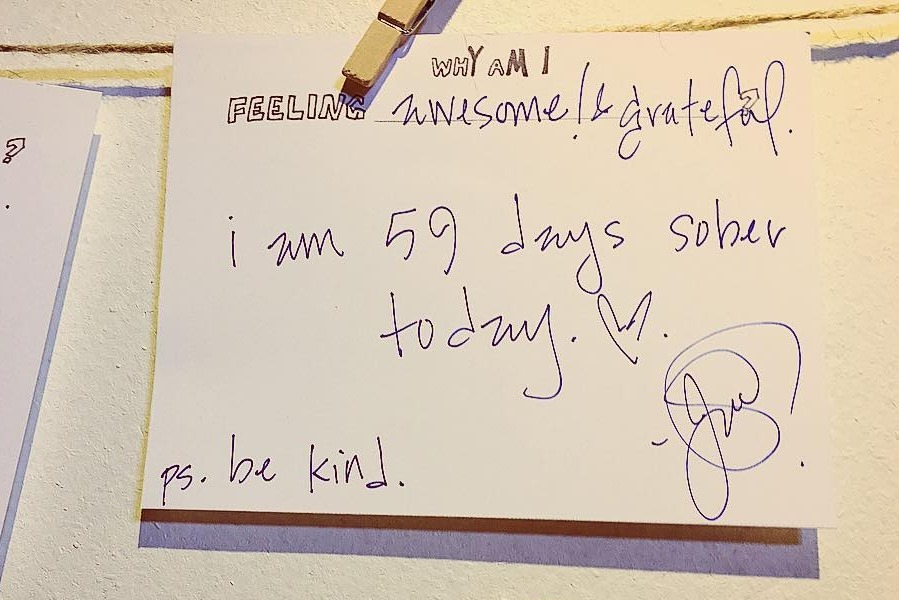 WHY AM I
FEELING awesome! & grateful.?
i am 59 days sober
today.
ps. be kind.
?
.